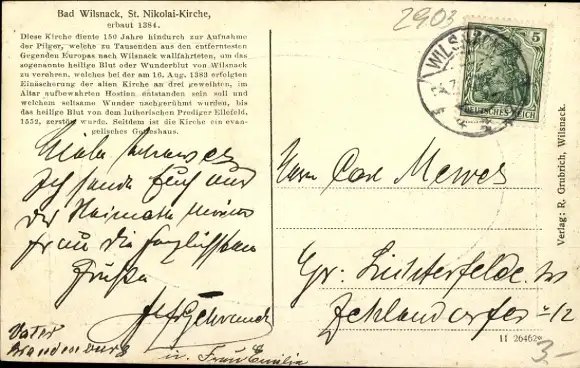 Bad Wilsnack, St. Nikolai-Kirche,
erbaut 1384.
Diese Kirche diente 150 Jahre hindurch zur Aufnahme
der Pilger, welche zu Tausenden aus den entferntesten
Gegenden Europas nach Wilsnack wallfahrteten, um das
sogenannte heilige Blut oder Wunderblut von Wilsnack
zu verehren, welches bei der am 16. Aug. 1383 erfolgten
Einäscherung der alten Kirche an drei geweihten, im
Altar aufbewahrten Hostien entstanden sein soll und
welchem seltsame Wunder nachgerühmt wurden, bis
das heilige Blut von dem lutherischen Prediger Ellefeld,
1552, zerstört wurde. Seitdem ist die Kirche ein evan-
gelisches Gotteshaus.
Ich sende Euch aus
der Heimath meiner
Frau die herzlichsten
Grüße
Vater
Brandenburg
u. Frau Emilie
2903
WILSNACK
5
DEUTSCHES REICH
Herrn Carl Mewes
Gr. Lichterfelde
Zehlendorfer 12
Verlag: R. Grubrich, Wilsnack.
11 26462
3-